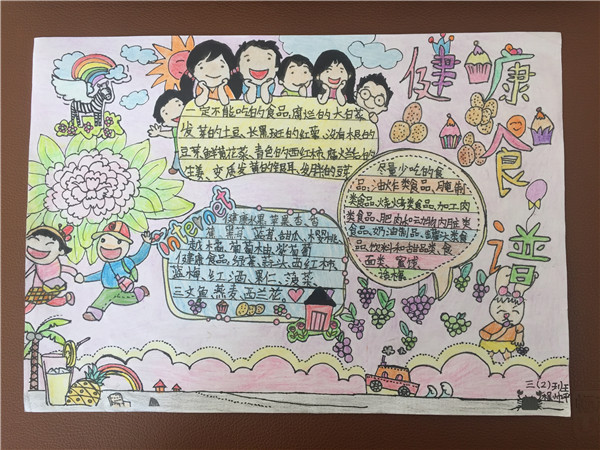 健康食谱
一定不能吃的食品,腐烂的大白菜
发芽的土豆、长黑斑的红薯、没有木根的
豆芽、鲜黄花菜、青色的西红柿、腐火烂后的
生姜、变质发黄的银耳、发胖的豆
尽量少吃的食
品:油炸类食品、腌制
类食品、烧烤类食品、加工肉
类食品、肥肉和动物内脏类
食品、奶油制品、罐头类食
品、饮料和甜品类、食
面类、蜜饯
Internet
健康水果 苹果 杏 香
蕉 黑莓 蓝莓、甜瓜、樱桃
越木莓 葡萄柚 紫葡萄
健康食品 绿茶 蒜头 西红柿
红酒、果仁、菠菜
三文鱼、燕麦、西兰花。
三(2)班